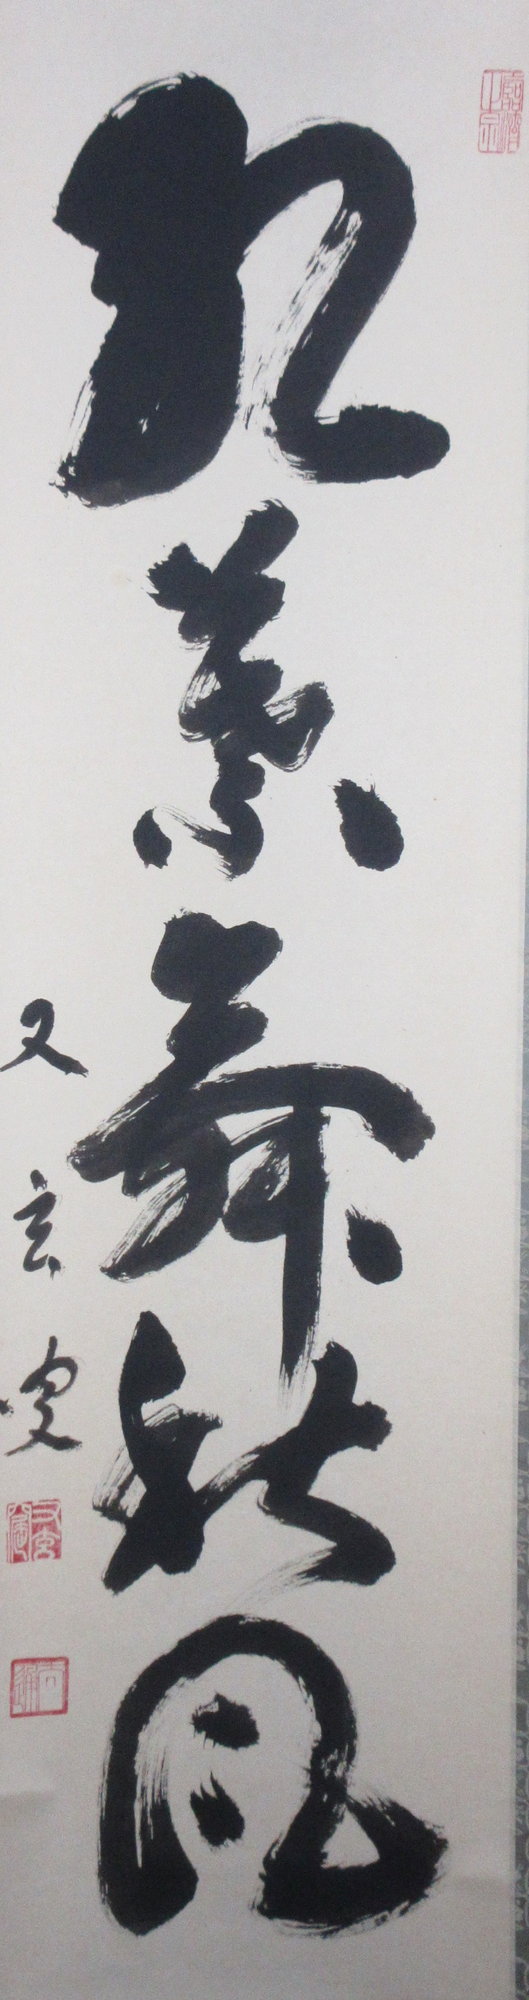 紅葉舞秋風
又玄叟